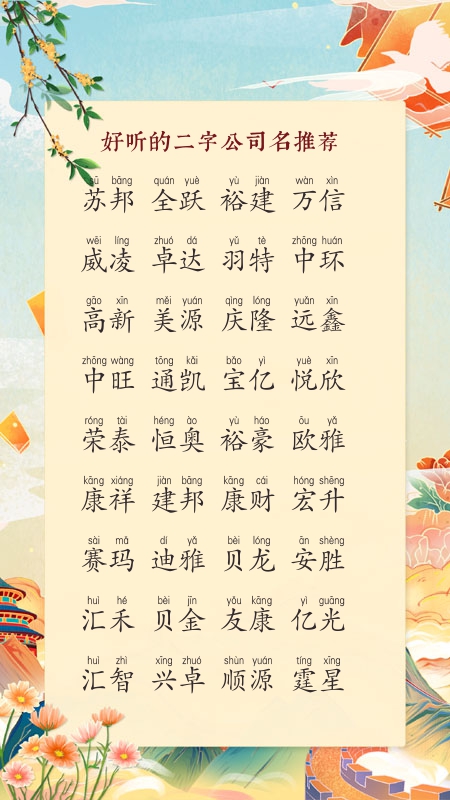 好听的二字公司名推荐
sū bāng quán yuè yù jiàn wàn xìn
苏邦 全跃 裕建 万信
wēi líng zhuó dá yǔ tè zhōng huán
威凌 卓达 羽特 中环
gāo xīn měi yuán qìng lóng yuǎn xīn
高新 美源 庆隆 远鑫
zhōng wàng tōng kǎi bǎo yì yuè xīn
中旺 通凯 宝亿 悦欣
róng tài héng ào yù háo ōu yǎ
荣泰 恒奥 裕豪 欧雅
kāng xiáng jiàn bāng kāng cái hóng shēng
康祥 建邦 康财 宏升
sài mǎ dí yǎ bèi lóng ān shèng
赛玛 迪雅 贝龙 安胜
huì hé bèi jīn yǒu kāng yì guāng
汇禾 贝金 友康 亿光
huì zhì xīng zhuó shùn yuán tíng xīng
汇智 兴卓 顺源 霆星